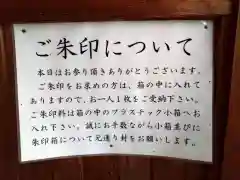 ご朱印について
本日はお参り頂きありがとうございます。
ご朱印をお求めの方は、箱の中に入れて
ありますので、お一人1枚をご奉納下さい。
ご朱印料は箱の中のプラスチック小箱へお
入れ下さい。誠にお手数ながら小箱並びに
朱印箱について元通り封をお願いします。